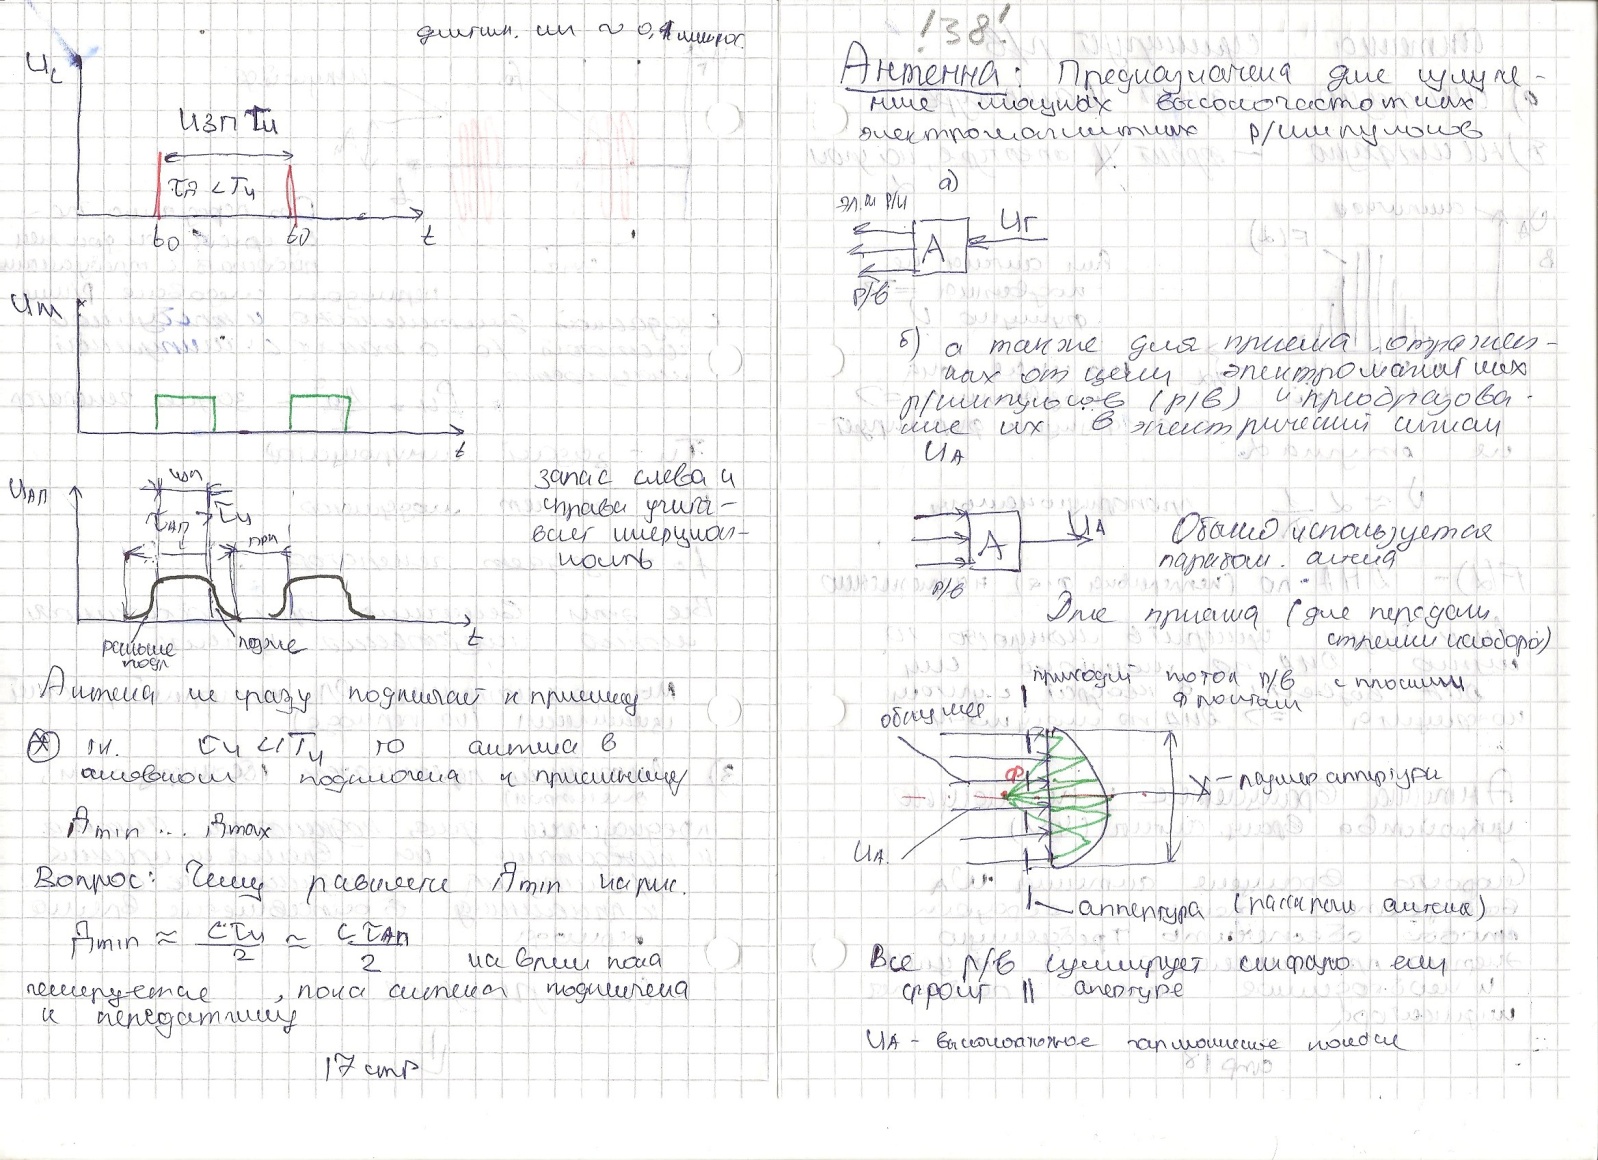 длит. ~ 0,1 микрос.
Uс
ИЗП Tи
τА < Tи
t0
t0
t
Uм
t
UАП
изп
τи
τАП
при
t
раньше
подкл
позже
запас слева и
справа учиты-
вает инерцион-
ность
Антена не сразу подключает к приемнику
т.к. τи << Tи то антена в
основном подключена к приемнику
Дmin ... Дmax
Вопрос: Чему равняется Дmin на рис.
Дmin ≈ cτи/2 ≈ cτАП/2
на время пока
генерируется, пока антена подключена
к передатчику
17 стр
138!
Антенна: Предназначена для излуче-
ние мощных высокочастотных
электромагнитных р/импульсов
а)
эл.м р/и
А
Uг
р/в
б) а также для приема отражен-
ных от цели электромагнитных
р/импульсов (р/в) и преобразова-
ние их в электрический сигнал
UА
А
UА
р/в
Обычно используется
парабол. антена
Для приема (для передачи
стрелки наоборот)
приходит поток р/в с плоским
фронтом
облучение
Ф
размер аппертуры
UА.
аппертура (раскрыв антены)
Все р/в суммирует синфазно если
фронт || апертуре
UА - высокочастотное гармоническое колебание